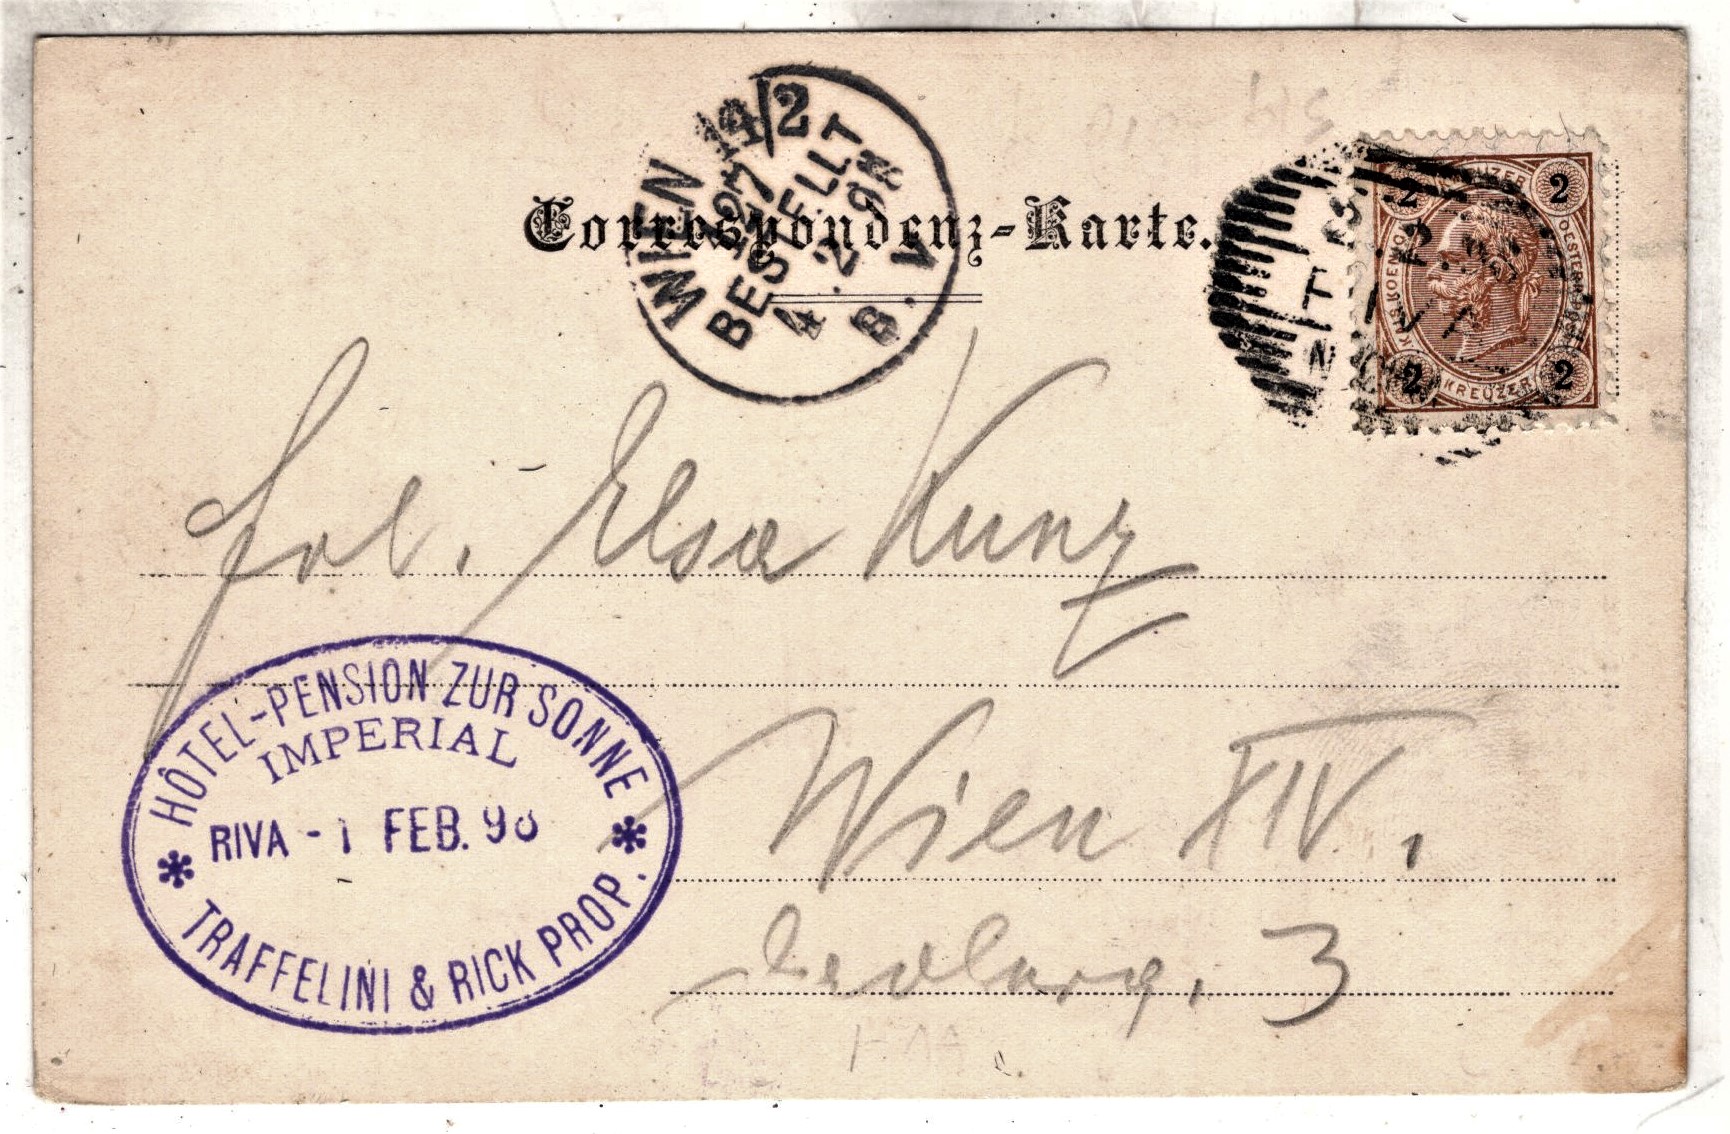 Correspondenz-Karte.
WIEN 14/2
BESTELLT
B. V
2 KREUZER 2
2 KREUZER 2
Frl. Elsa Kunz
Wien XIV.
3
HÔTEL-PENSION ZUR SONNE
IMPERIAL
RIVA - 1 FEB. 98
* TRAFFELINI & RICK PROP. *